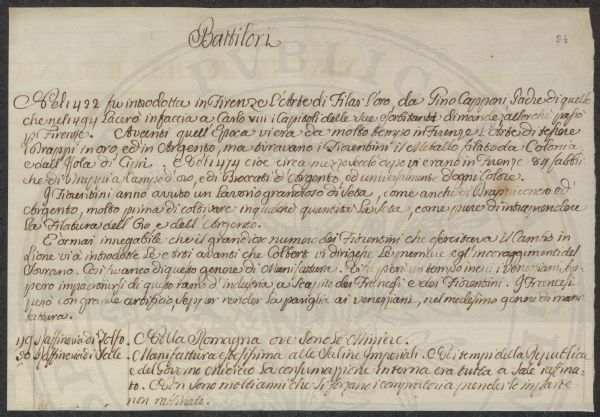 Battilori
94
Nel 1422 fu introdotta in Firenze L'Arte di Filar L'oro, da Gino Capponi, Padre di quello
che nel 1494 lacerò in faccia a Carlo VIII i Capitoli delle sue esorbitanti dimande, allorché passò
p Firenze. Avanti quell'Epoca vi era da molto tempo in Firenze L'Arte di tessere
i Drappi in oro, ed in Argento, ma tiravano i Fiorentini il Metallo filato da Colonia
e dall'Isola di Cipri. E nel 1474 cioè circa mezzo secolo dopo vi erano in Firenze 84 fabbri
che di Drappi a lampo d'oro, e di Broccati d'Argento, ed d'ogni Colore.
I Fiorentini anno avuto un Lavorio grandioso di Seta, come anche di Drappi in oro ed
Argento, molto prima di coltivare in qualche quantità la Seta, come pure di intraprendere
la Filatura dell'Oro e dell'Argento.
È ormai innegabile che il grandioso numero dei Fiorentini che esercitava il Cambio in
Lione vi à introdotte Le Arti avanti che Colbert vi dirigesse Le premure e gl'incoraggimenti del
Sovrano. Così fu anco di questo genere di Manifattura. Vi fu però un tempo in cui i Veneziani sep
pero impadronirsi di questo ramo d'industria a Scapito dei Francesi e dei Fiorentini. I Francesi
però con grande artifizio, seppero render la pariglia ai veneziani, nel medesimo genere di mani
fattura.
119. Raffineria di Zolfo. Nella Romagna ove sono le Miniere.
90. Raffineria di Salle. Manifattura espostissima alle Saline Imperiali. Ai tempi della Repubblica
e del Governo Mediceo la consumazione interna era tutta a Sale raffina-
to. Non sono molti anni che si forzano i compratori a prender le
non raffinato.